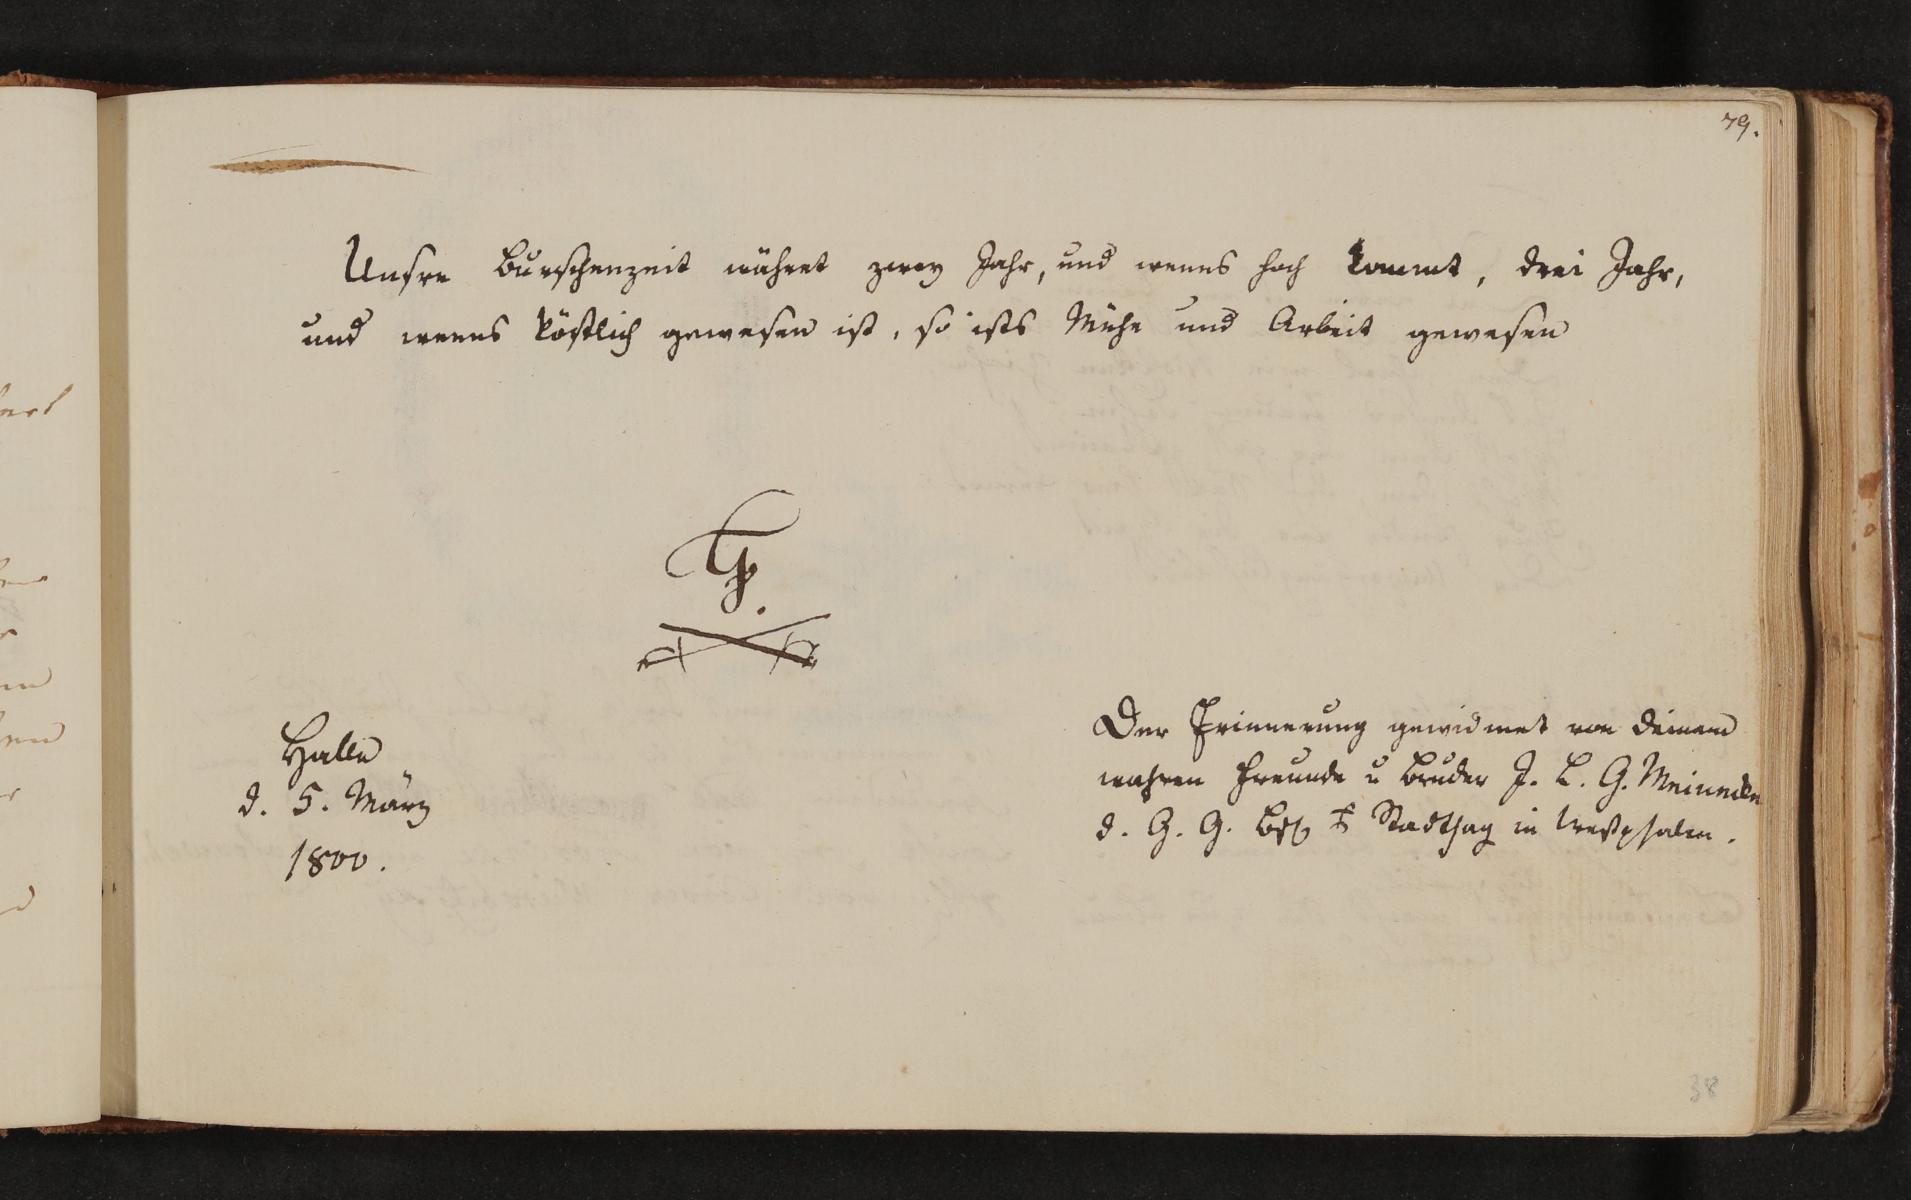 79.
Unsre Burschenzeit währet zwey Jahr, und wenns hoch kommt, drei Jahr,
und wenns köstlich gewesen ist, so ists Mühe und Arbeit gewesen
Halle
d. 5. März
1800.
Der Erinnerung gewidmet von deinem
wahren Freunde u Bruder J. L. G. Meinecke
d. G. G. Bfl. Stadthag in Westphalen.
38